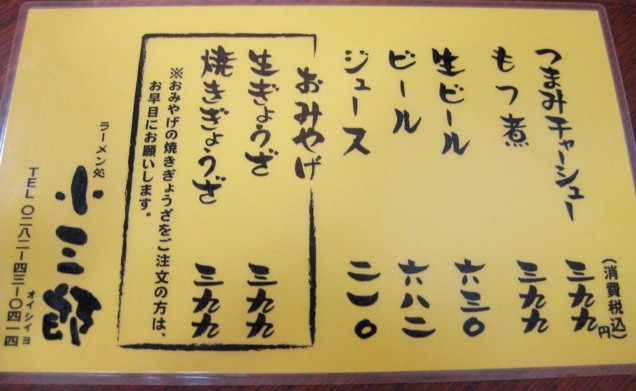 (消費税込)
つまみチャーシュー 三九九円
もつ煮 三九九
生ビール 六三〇
ビール 六八二
ジュース 二一〇
おみやげ
生ぎょうざ 三九九
焼きぎょうざ 三九九
※おみやげの焼きぎょうざをご注文の方は、
お早目にお願いします。
ラーメン処
小三郎
オイシイヨ
TEL 〇二八二ー四三ー〇四一四